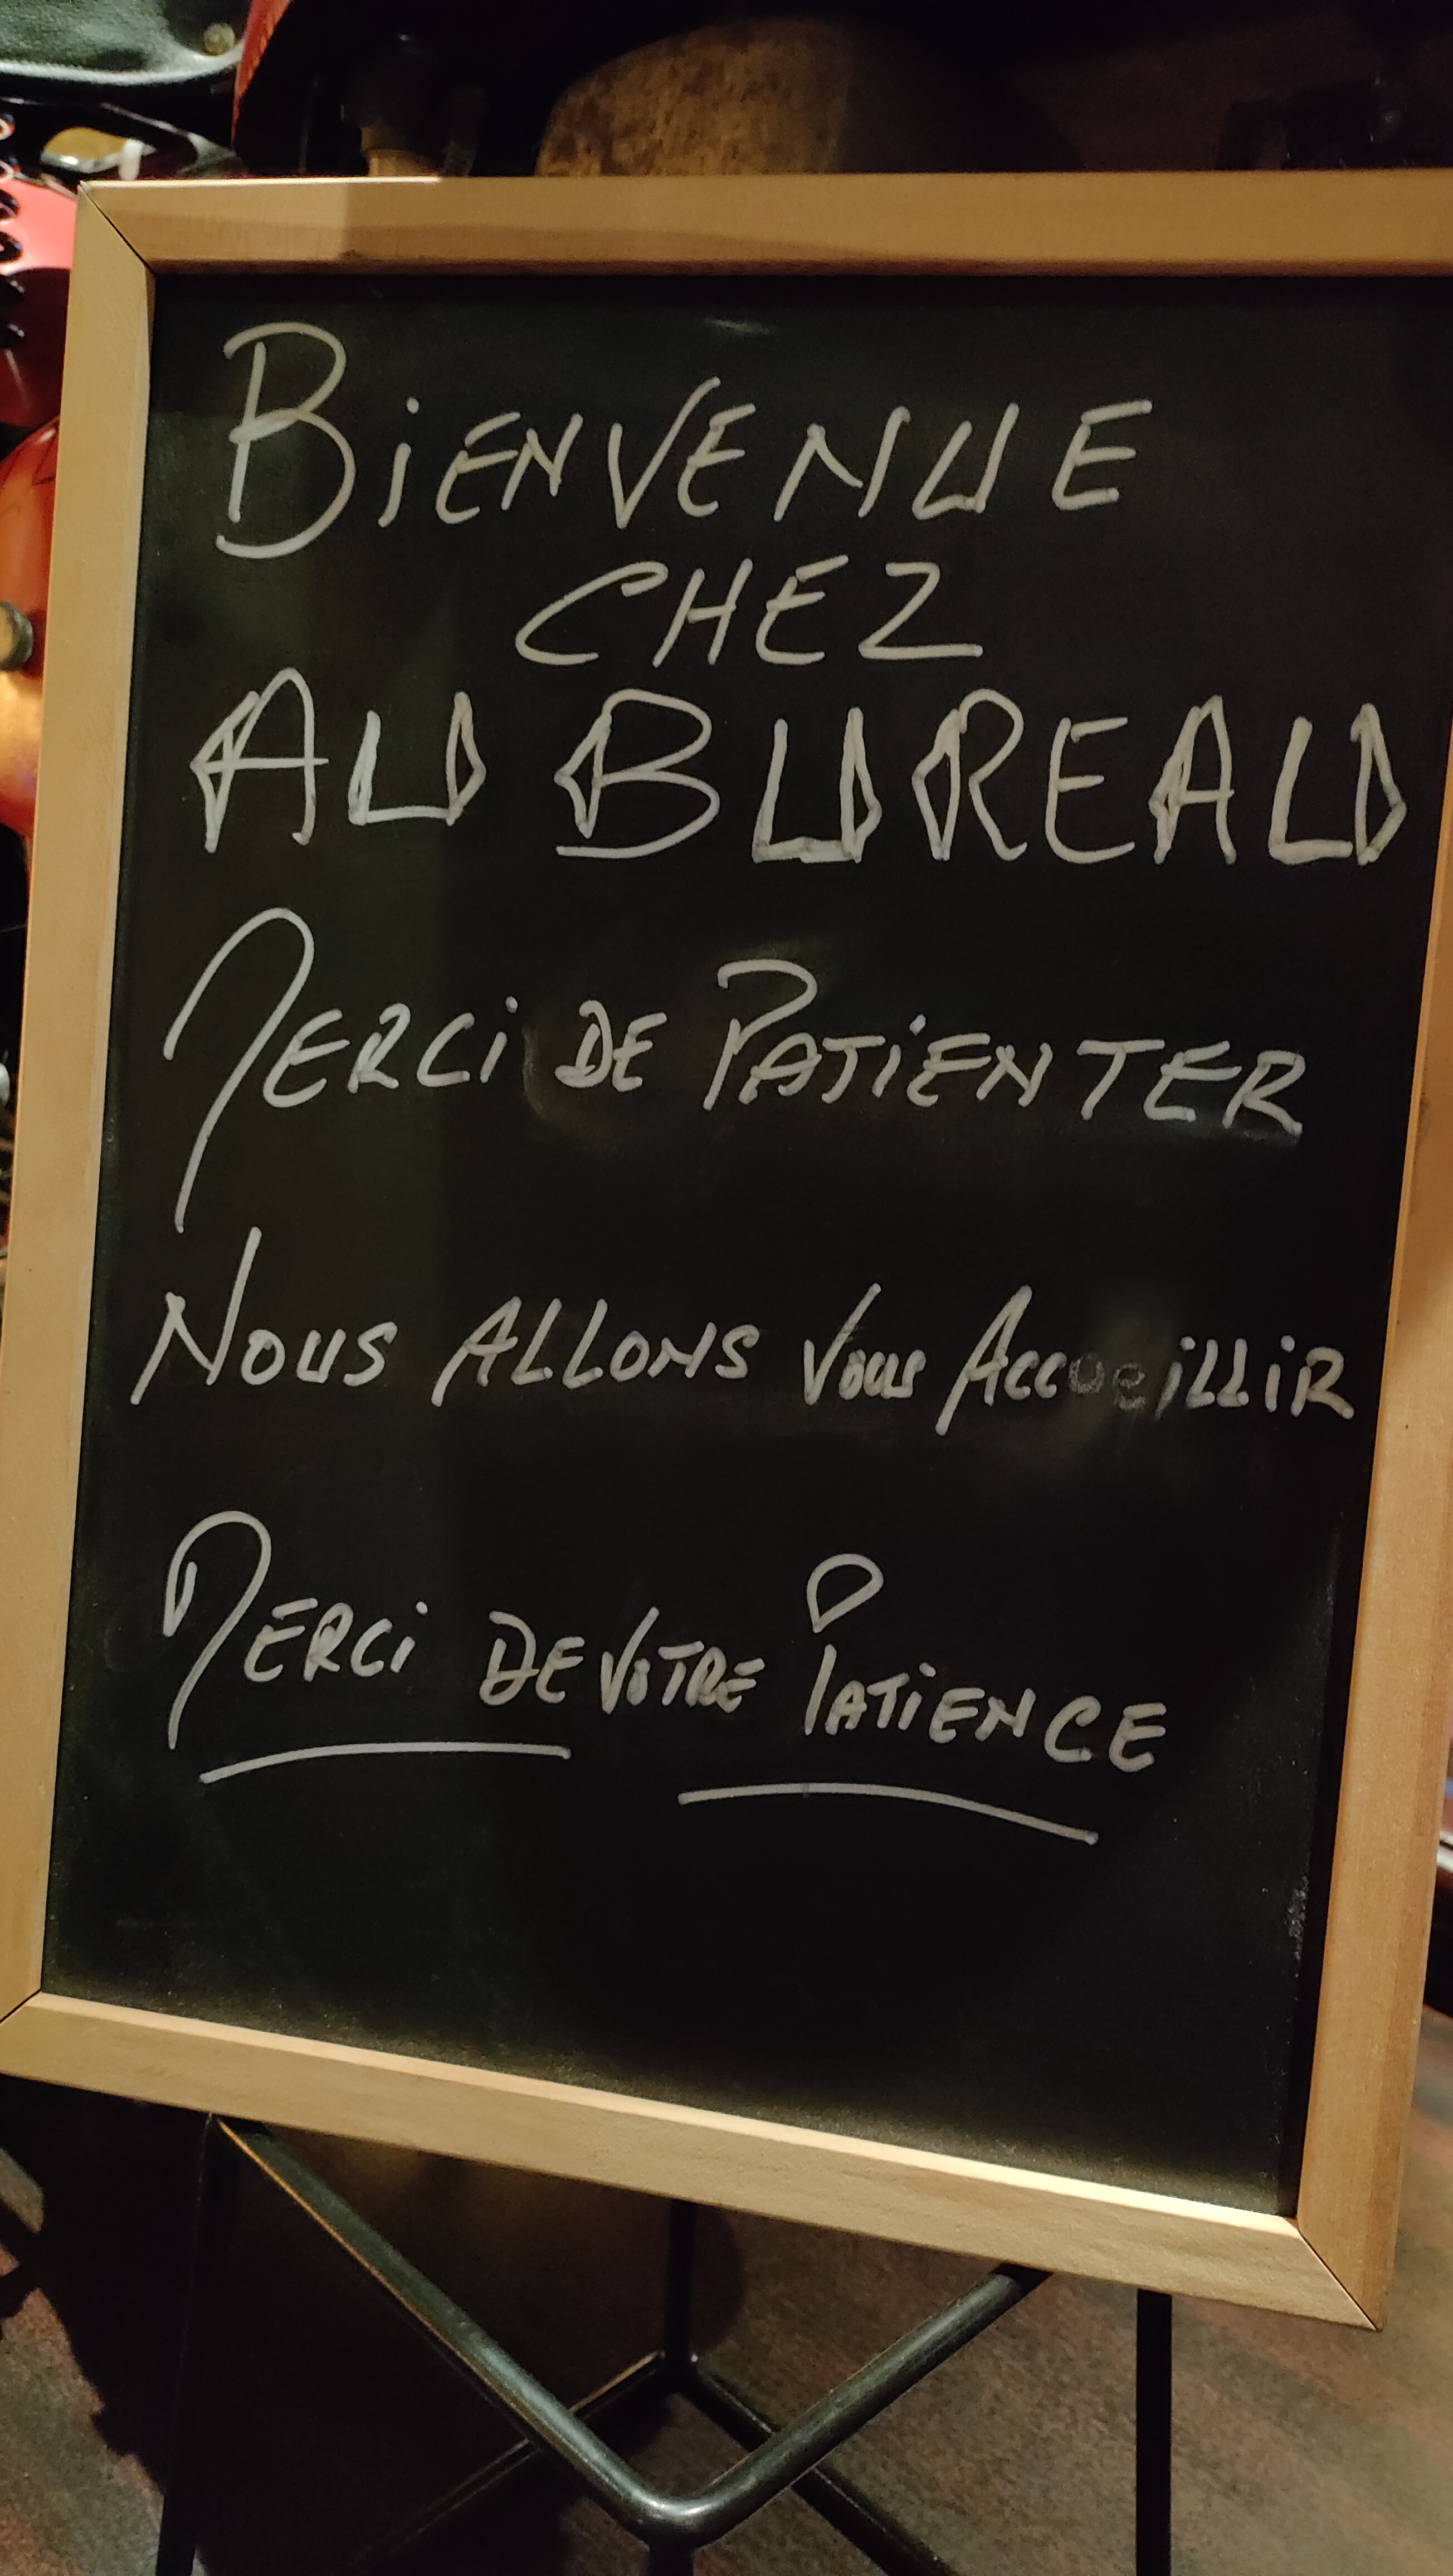 BiENVENUE
CHEZ
AU BUREAU
MERCi DE PATiENTER
NOUS ALLONS Vous ACCueiLLiR
MERCi DE VOTRE PATiENCE